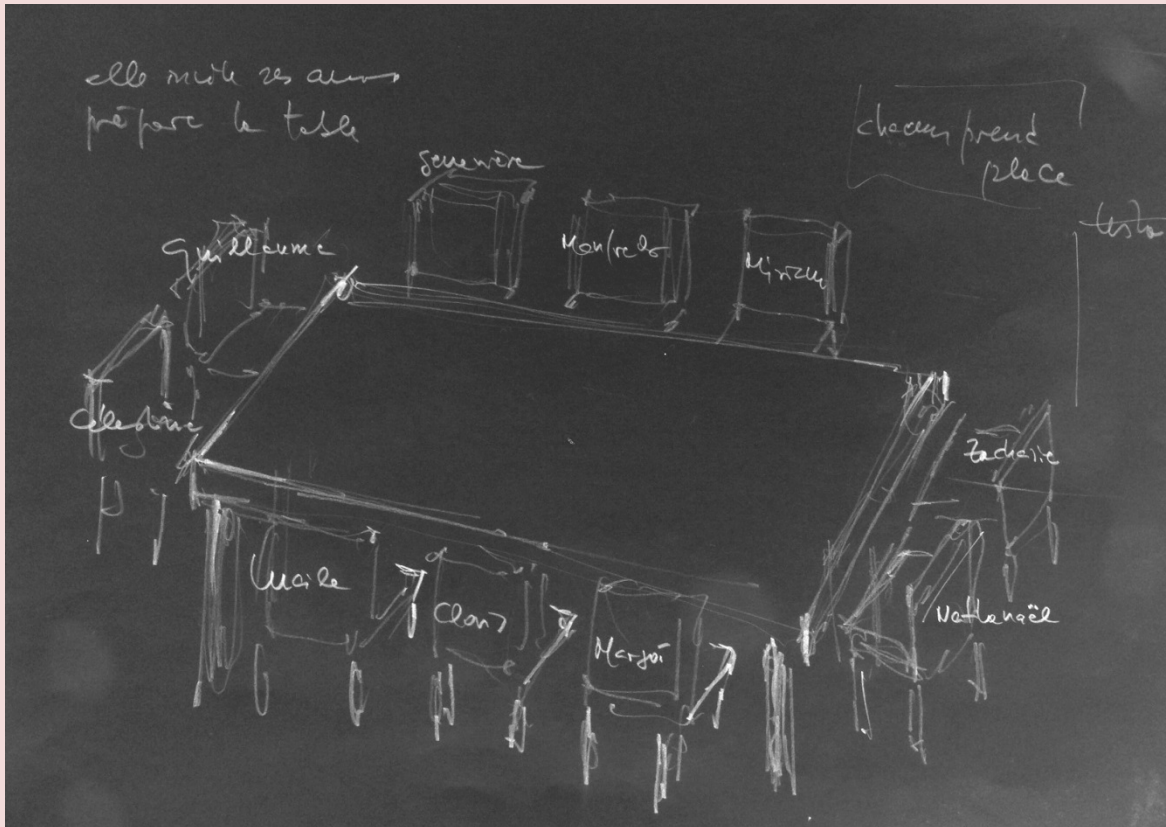 elle invite ses amis
prépare la table
chacun prend
place
Geneviève
Guillaume
Manfredo
Myriam
Célestine
Zacharie
Lucile
Clans
Nathanaël
Margot